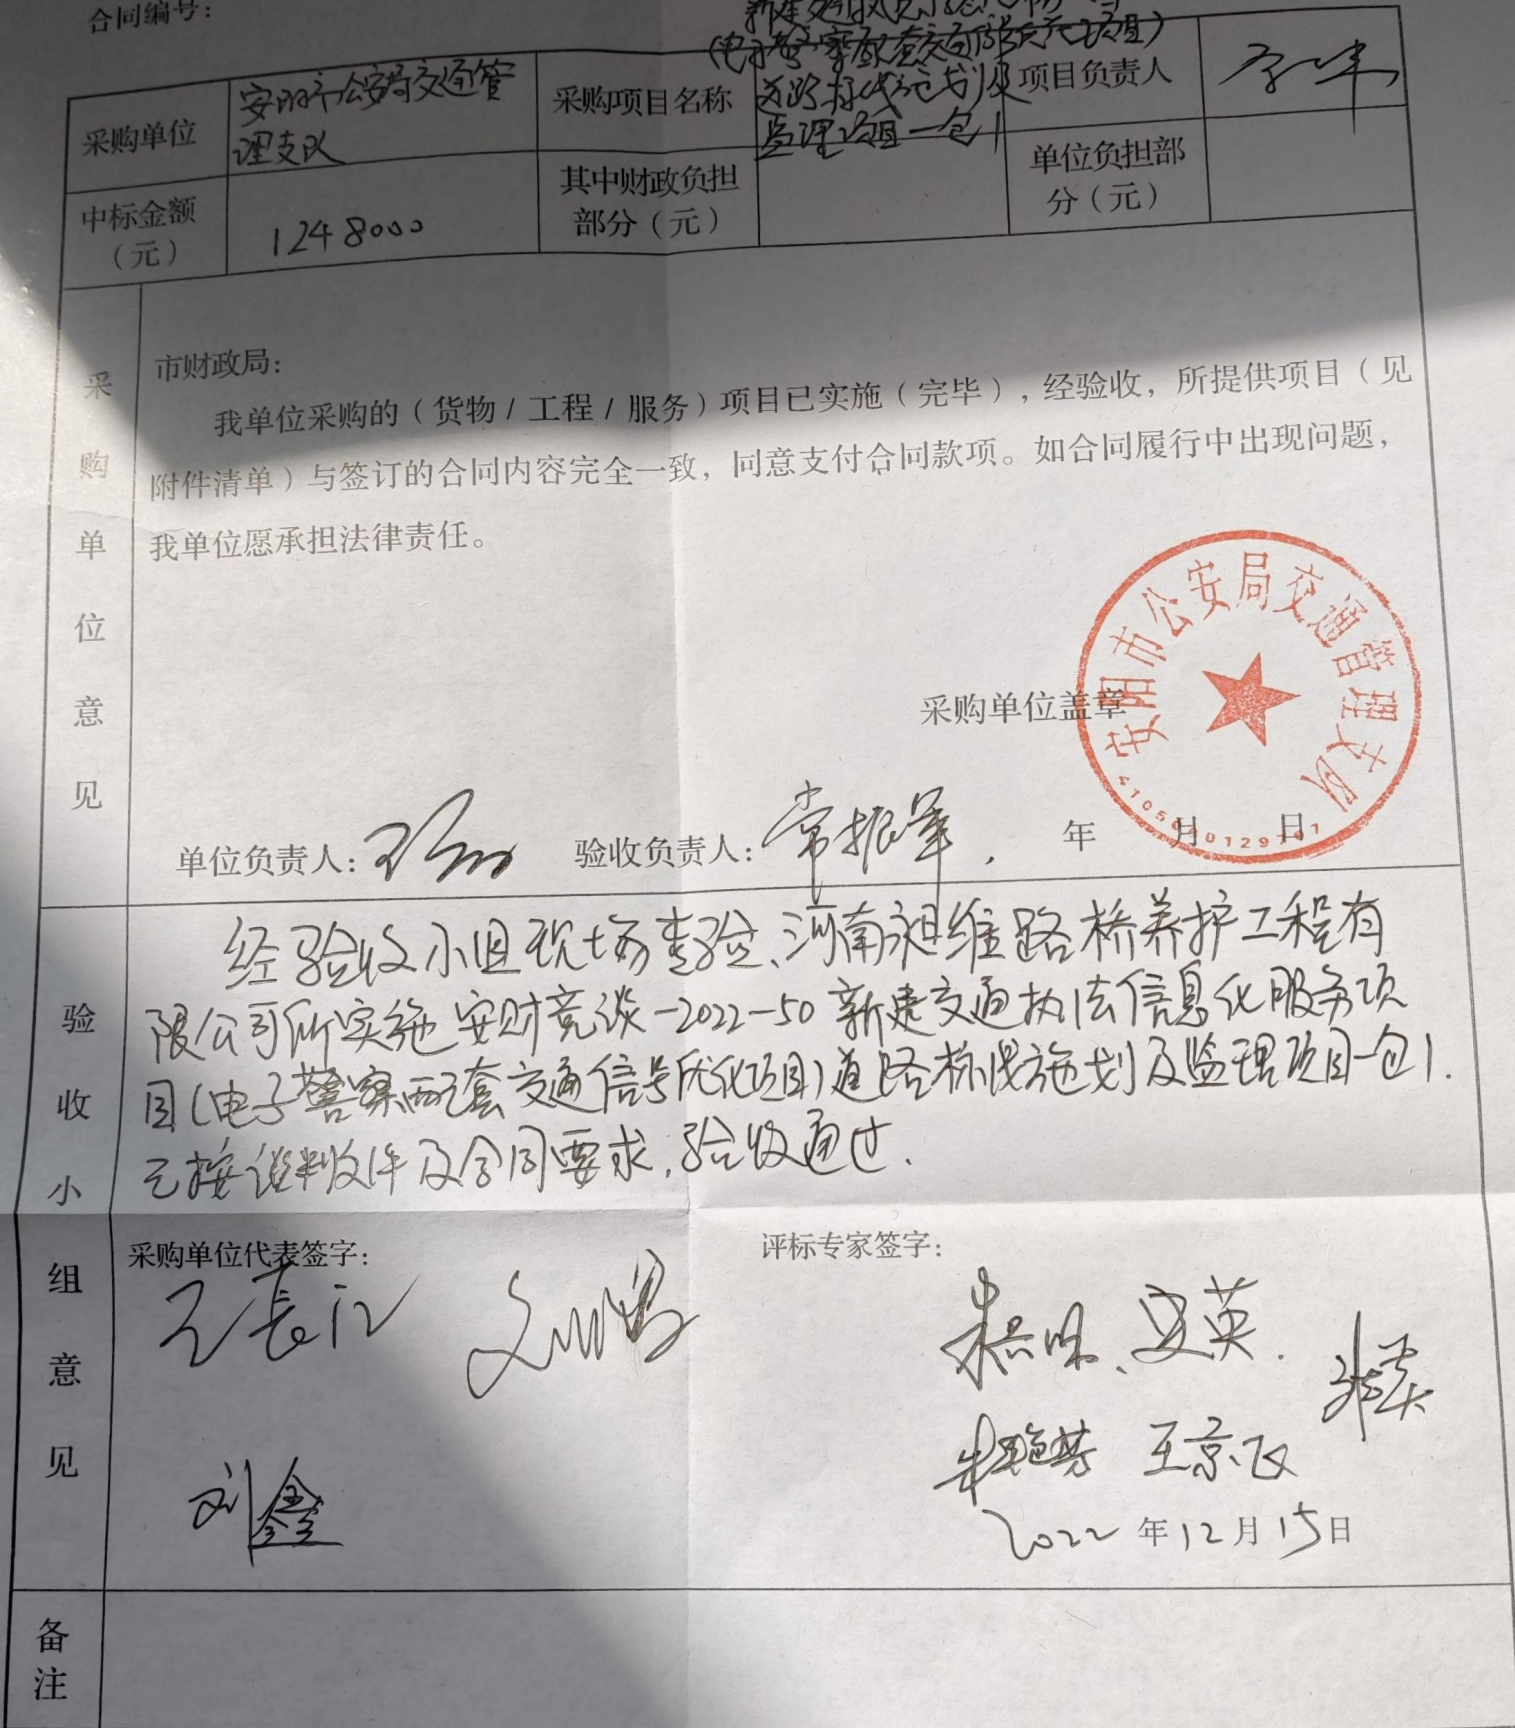 合同编号：
采购单位
安阳市公安局交通管
理支队
采购项目名称
(电子警察配套交通信号优化项目)
道路标线施划及
监理项目一包1
项目负责人
中标金额
（元）
1248000
其中财政负担
部分（元）
单位负担部
分（元）
采购单位意见
市财政局：
我单位采购的（货物/工程/服务）项目已实施（完毕），经验收，所提供项目（见
附件清单）与签订的合同内容完全一致，同意支付合同款项。如合同履行中出现问题，
我单位愿承担法律责任。
采购单位盖章
安阳市公安局交通管理支队
单位负责人：
验收负责人：常振军
年 月 日
验收小组意见
经验收小组现场查验、河南昶维路桥养护工程有
限公司所实施安财竞谈-2022-50新建交通执法信息化服务项
目(电子警察配套交通信号优化项目)道路标线施划及监理项目一包1.
已按谈判文件及合同要求,验收通过.
采购单位代表签字：
王长江
刘鑫
评标专家签字：
王京飞
2022年12月15日
备注